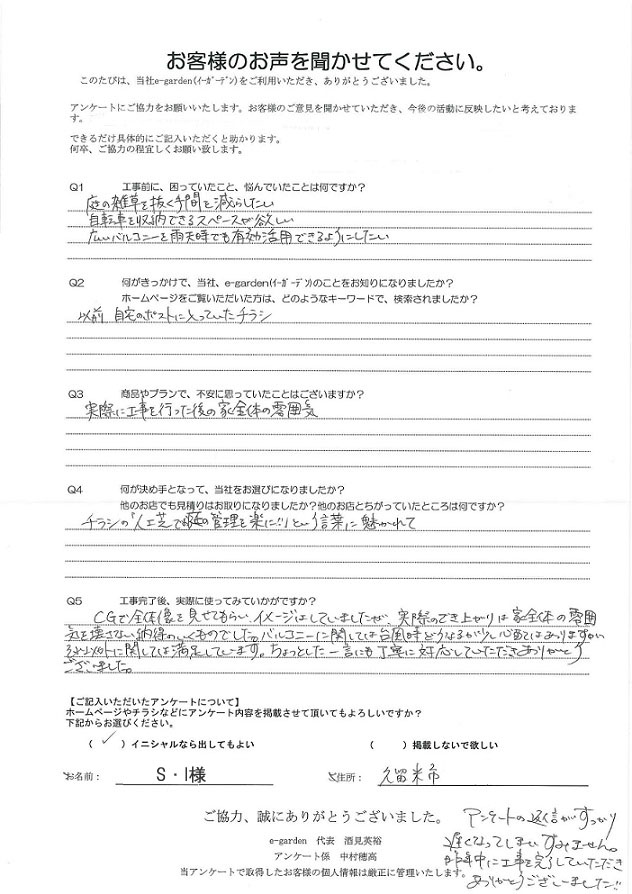 お客様のお声を聞かせてください。
このたびは、当社e-garden(ｲｰｶﾞｰﾃﾞﾝ)をご利用いただき、ありがとうございました。
アンケートにご協力をお願いいたします。お客様のご意見を聞かせていただき、今後の活動に反映したいと考えておりま
す。
できるだけ具体的にご記入いただくと助かります。
何卒、ご協力の程宜しくお願い致します。
Q1 工事前に、困っていたこと、悩んでいたことは何ですか？
庭の雑草を抜く手間を減らしたい
自転車を収納できるスペースが欲しい
広いバルコニーを雨天時でも有効活用できるようにしたい
Q2 何がきっかけで、当社、e-garden(ｲｰｶﾞｰﾃﾞﾝ)のことをお知りになりましたか？
ホームページをご覧いただいた方は、どのようなキーワードで、検索されましたか？
以前 自宅のポストに入っていたチラシ
Q3 商品やプランで、不安に思っていたことはございますか？
実際に工事を行った後の家全体の雰囲気
Q4 何が決め手となって、当社をお選びになりましたか？
他のお店でも見積りはお取りになりましたか？他のお店とちがっていたところは何ですか？
チラシの「人工芝で庭の管理を楽に!!」という言葉に魅かれて
Q5 工事完了後、実際に使ってみていかがですか？
CGで全体像を見せてもらい、イメージはしていましたが、実際のでき上がりは家全体の雰囲
気を壊さない納得のいくものでした。バルコニーに関しては台風時どうなるか少し心配ではありますが
それ以外に関しては満足しています。ちょっとした一言にも丁寧に対応していただきありがとう
ございました。
【ご記入いただいたアンケートについて】
ホームページやチラシなどにアンケート内容を掲載させて頂いてもよろしいですか？
下記からお選びください。
（ ✓ ）イニシャルなら出してもよい （ ）掲載しないで欲しい
お名前： S・I様 ご住所： 久留米市
ご協力、誠にありがとうございました。
e-garden 代表 酒見英裕
アンケート係 中村穂高
当アンケートで取得したお客様の個人情報は厳正に管理いたします。
アンケートの返信がすっかり
遅くなってしまいすみません。
昨年中に工事を完了していただき
ありがとうございました!!